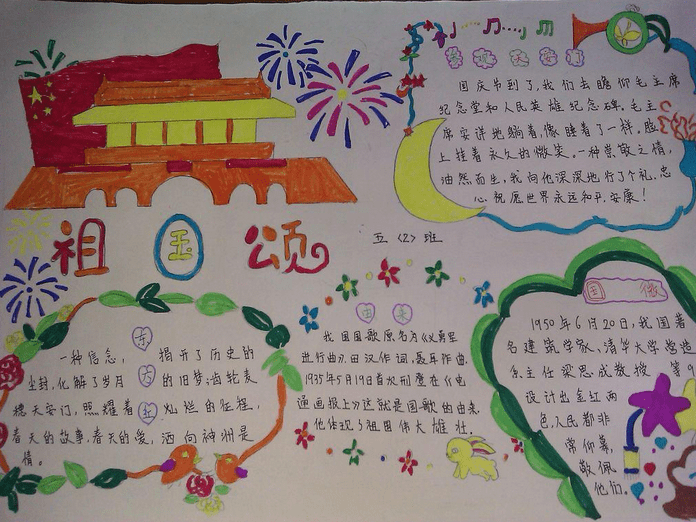 祖国颂
五〈2〉班
参观天安门
国庆节到了,我们去瞻仰毛主席
纪念堂和人民英雄纪念碑。毛主
席安详地躺着,像睡着了一样,脸
上挂着永久的微笑。一种崇敬之情,
油然而生,我向他深深地行了个礼,忠
心祝愿世界永远和平、安康!
东方红
一种信念,揭开了历史的
尘封,化解了岁月的旧梦;齿轮麦
穗天安门,照耀着灿烂的征程,
春天的故事,春天的爱,洒向神州是
情。
国歌
我国国歌原名为《义勇军
进行曲》,田汉作词,聂耳作曲,
1935年5月19日首次刊 在《电
通画报上》这就是国歌的由来.
他体现了祖国伟大雄壮.
国 徽
1950年6月20日,我国著
名建筑学家、清华大学营造
系主任梁思成教授 第9
设计出金红两
色,人民都非
常仰慕,
敬佩
他们。